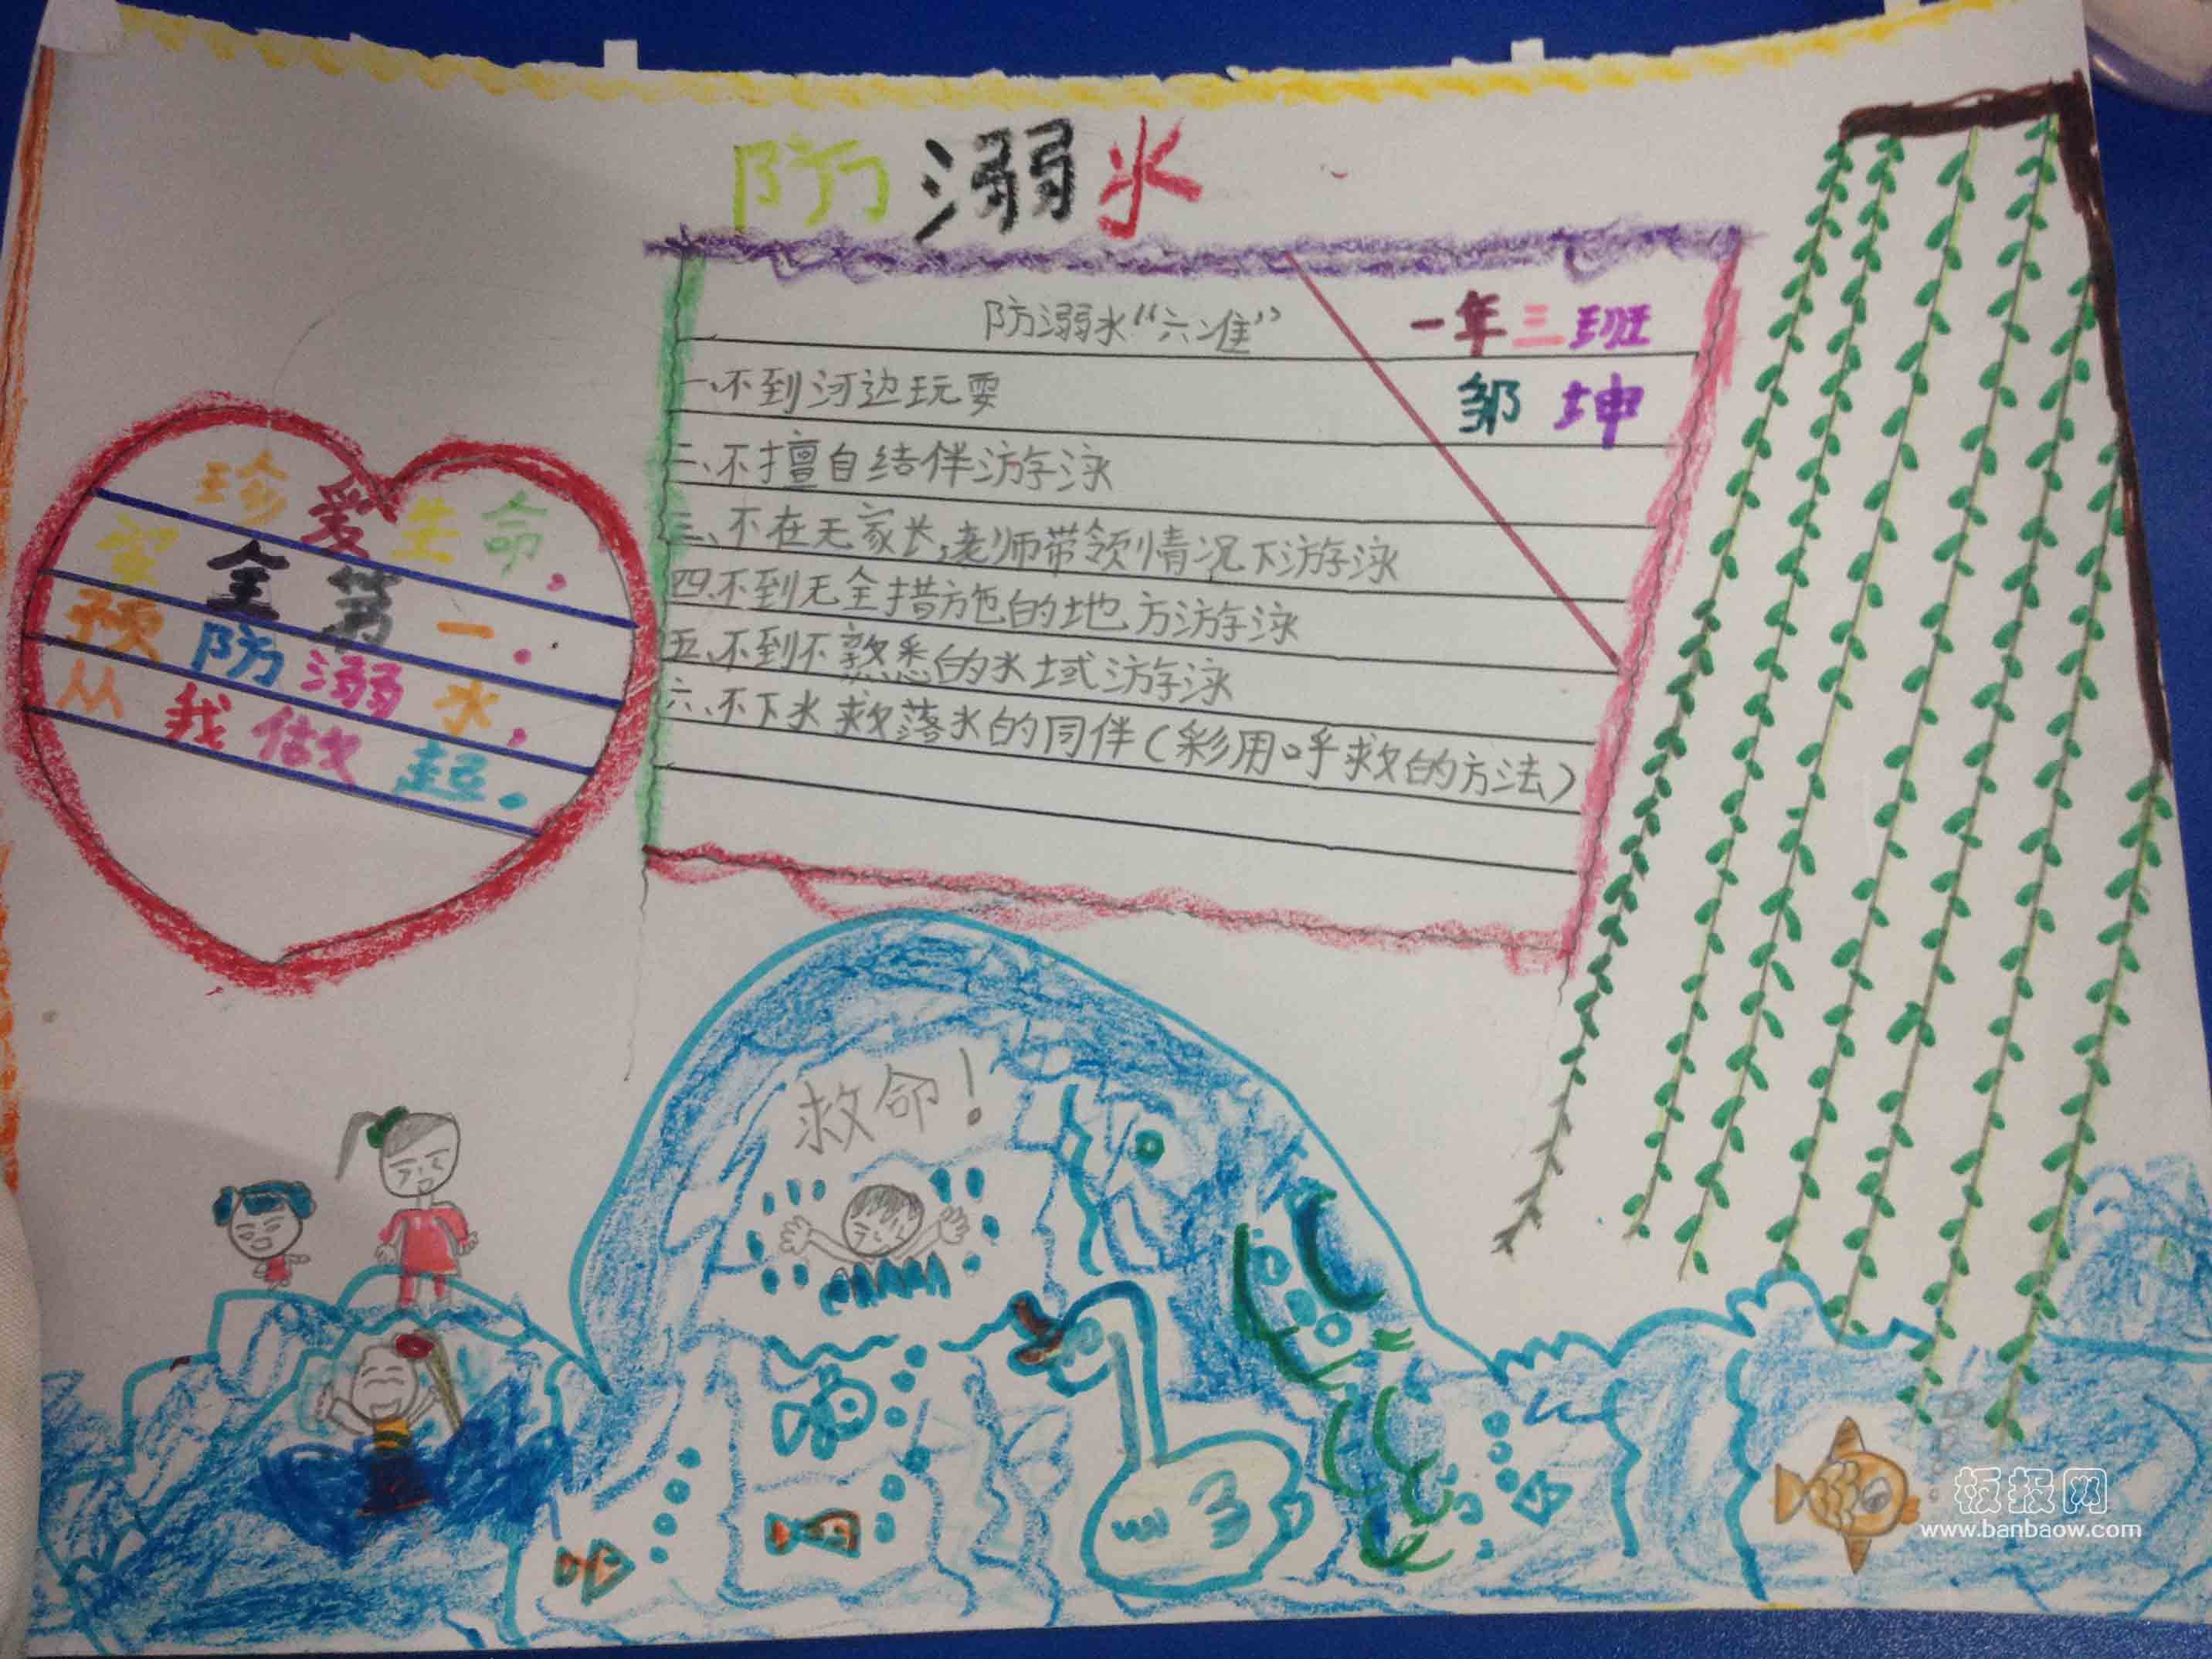 防溺水
防溺水“六准”
一年三班
邹坤
一、不到河边玩耍
二、不擅自结伴游泳
三、不在无家长,老师带领情况下游泳
四.不到无全措施的地方游泳
五、不到不熟悉的水域游泳
六、不下水救落水的同伴(彩用呼救的方法)
珍爱生命,
安全第一.
预防溺水,
从我做起.
救命!
板报网
www.banbaow.com